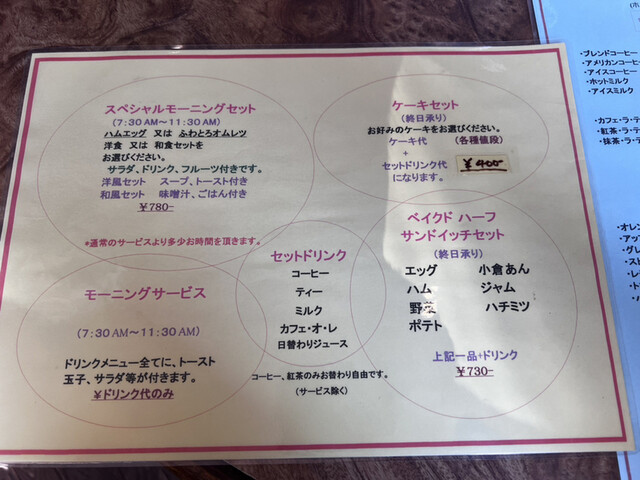 スペシャルモーニングセット
(7:30 AM～11:30 AM)
ハムエッグ 又は ふわとろオムレツ
洋食 又は 和食セットを
お選びください。
サラダ、ドリンク、フルーツ付きです。
洋風セット スープ、トースト付き
和風セット 味噌汁、ごはん付き
￥780-
*通常のサービスより多少お時間を頂きます。
ケーキセット
(終日承り)
お好みのケーキをお選びください。
ケーキ代 (各種値段)
+
セットドリンク代
になります。
￥400-
モーニングサービス
(7:30 AM～11:30 AM)
ドリンクメニュー全てに、トースト
玉子、サラダ等が付きます。
￥ドリンク代のみ
セットドリンク
コーヒー
ティー
ミルク
カフェ・オ・レ
日替わりジュース
コーヒー、紅茶のみお替わり自由です。
(サービス除く)
ベイクド ハーフ
サンドイッチセット
(終日承り)
エッグ 小倉あん
ハム ジャム
野菜 ハチミツ
ポテト
上記一品+ドリンク
￥730-
・ブレンドコーヒー
・アメリカンコーヒー
・アイスコーヒー
・ホットミルク
・アイスミルク
・カフェ・ラ・テ
・紅茶・ラ・テ
・抹茶・ラ・テ